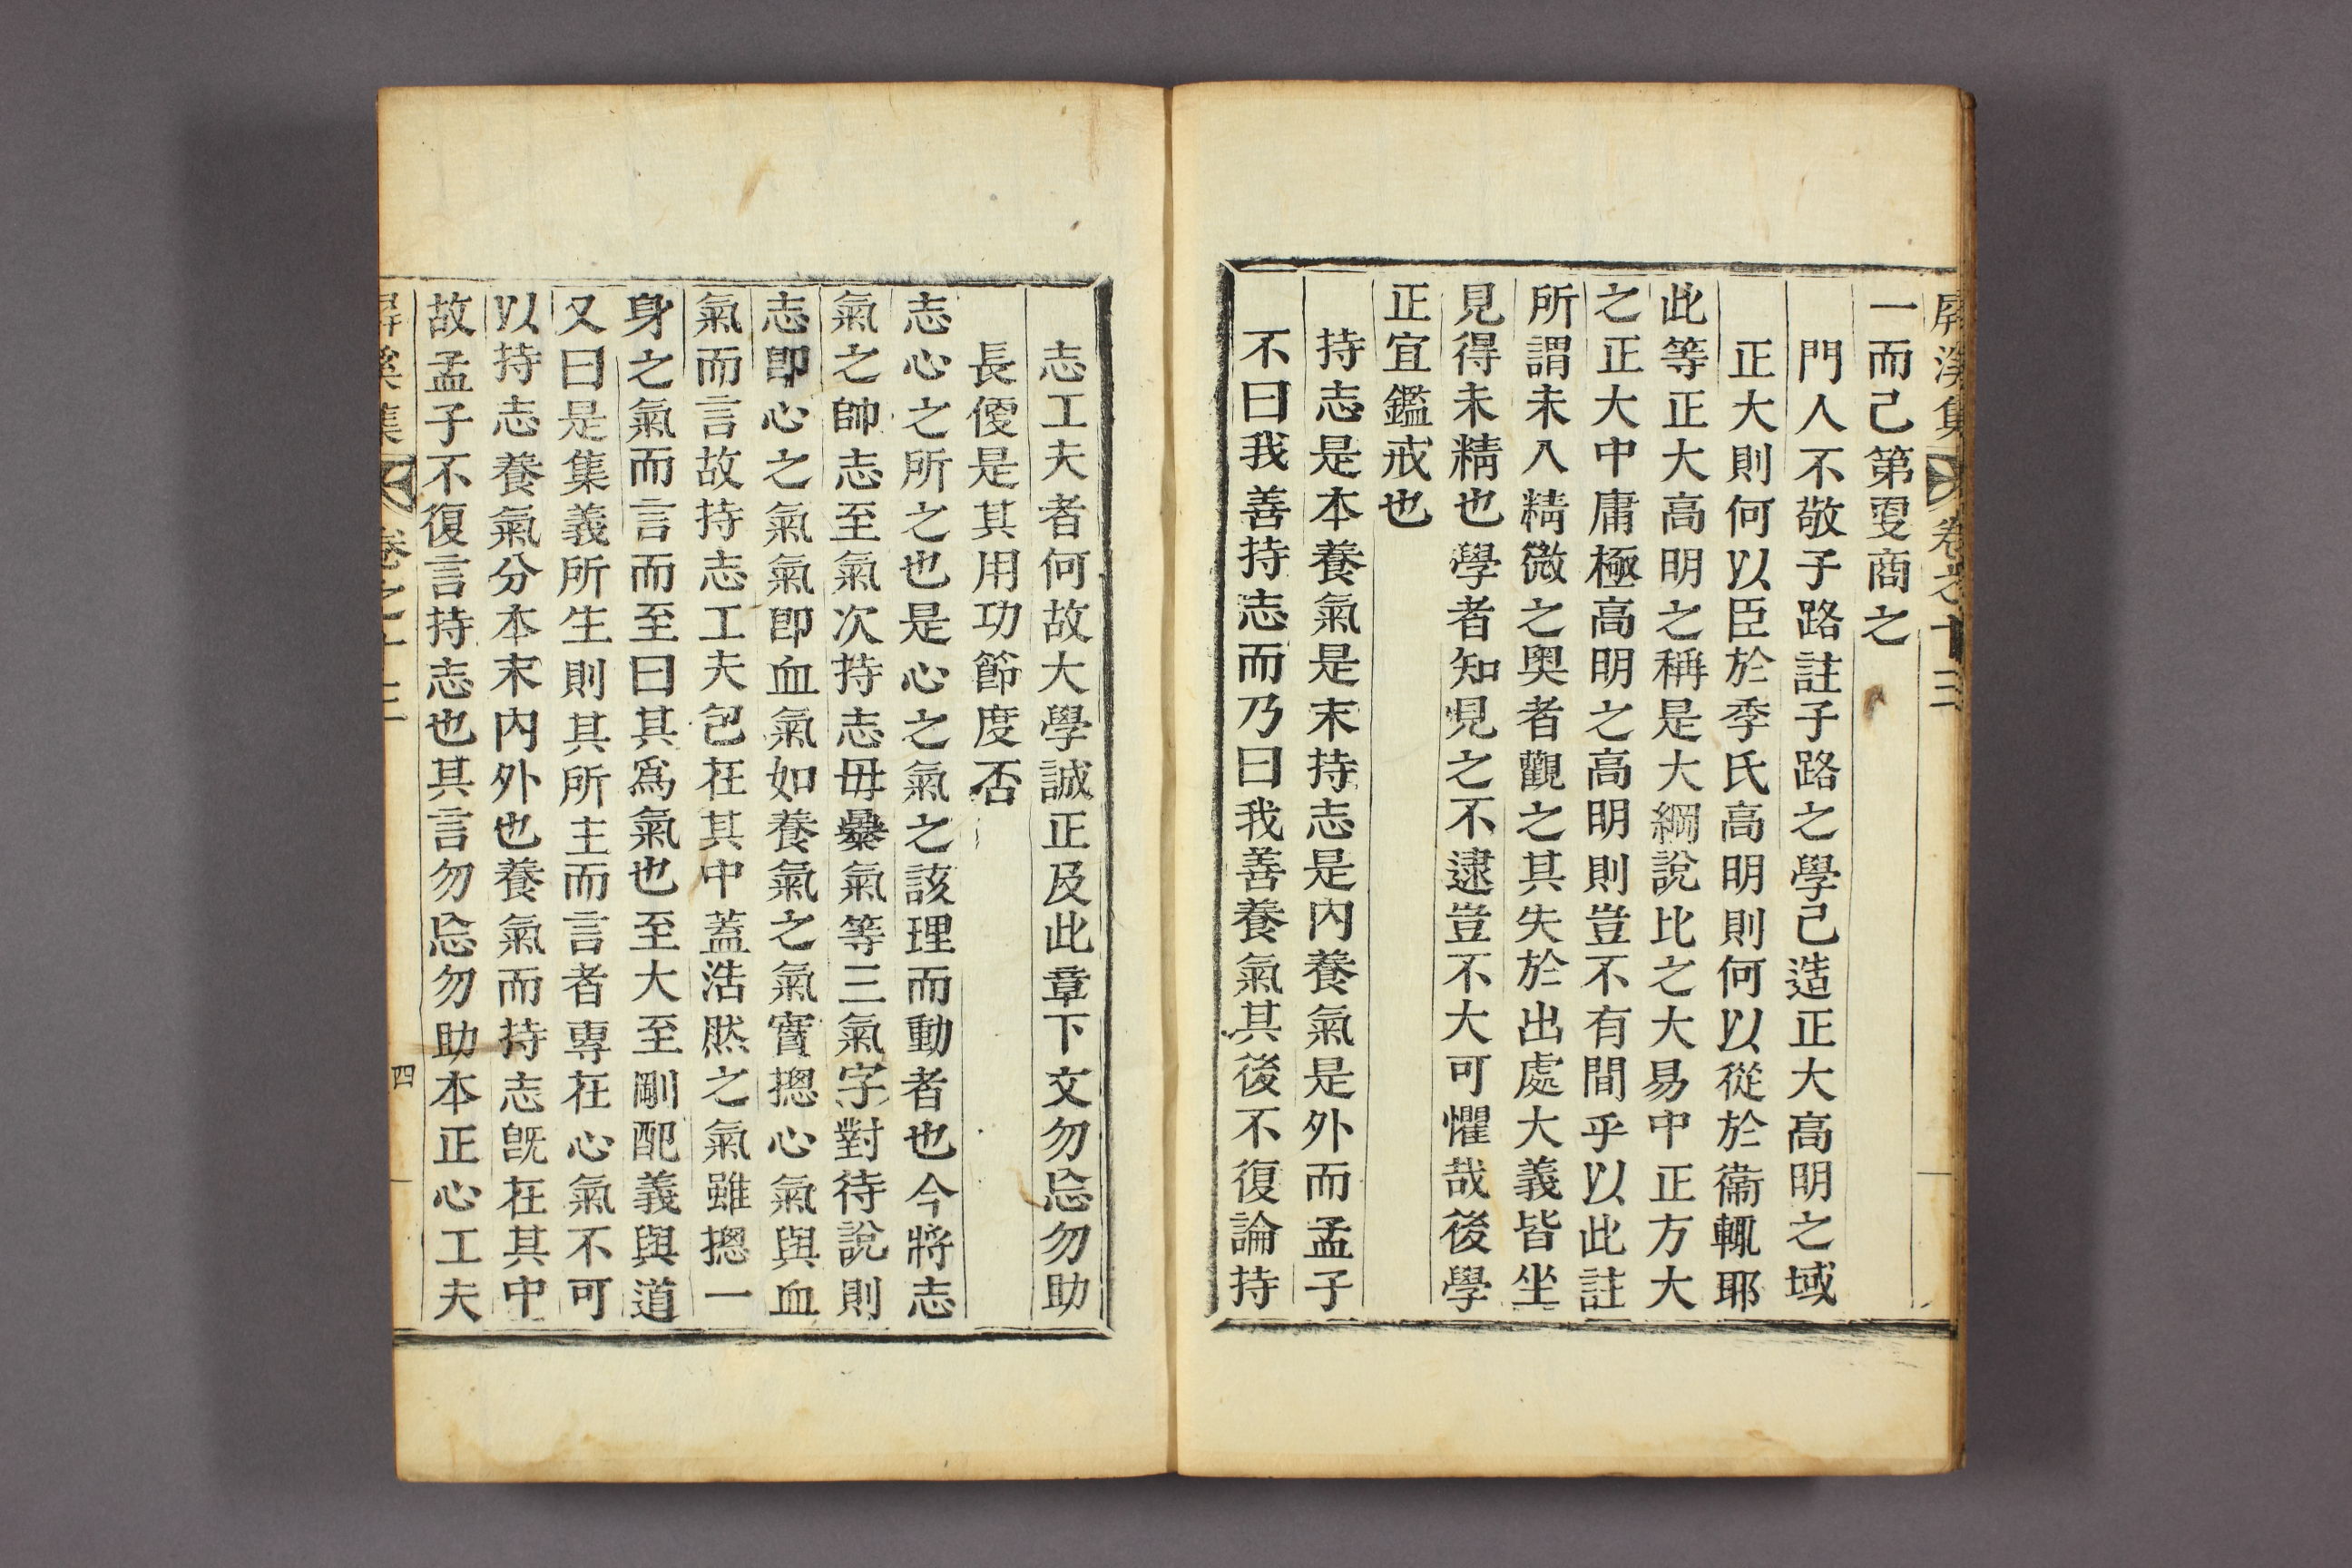 屏溪集 卷之十三
一而已第更商之
門人不敬子路註子路之學已造正大高明之域
正大則何以臣於季氏高明則何以從於衛輒耶
此等正大高明之稱是大綱說比之大易中正方大
之正大中庸極高明之高明則豈不有間乎以此註
所謂未入精微之奧者觀之其失於出處大義皆坐
見得未精也學者知見之不逮豈不大可懼哉後學
正宜鑑戒也
持志是本養氣是末持志是內養氣是外而孟子
不曰我善持志而乃曰我善養氣其後不復論持
志工夫者何故大學誠正及此章下文勿忘勿助
長便是其用功節度否
志心之所之也是心之氣之該理而動者也今將志
氣之帥志至氣次持志毋暴氣等三氣字對待說則
志卽心之氣氣卽血氣如養氣之氣實摠心氣與血
氣而言故持志工夫包在其中蓋浩然之氣雖摠一
身之氣而言而至曰其爲氣也至大至剛配義與道
又曰是集義所生則其所主而言者專在心氣不可
以持志養氣分本末內外也養氣而持志旣在其中
故孟子不復言持志也其言勿忘勿助本正心工夫
屏溪集 卷之十三 四